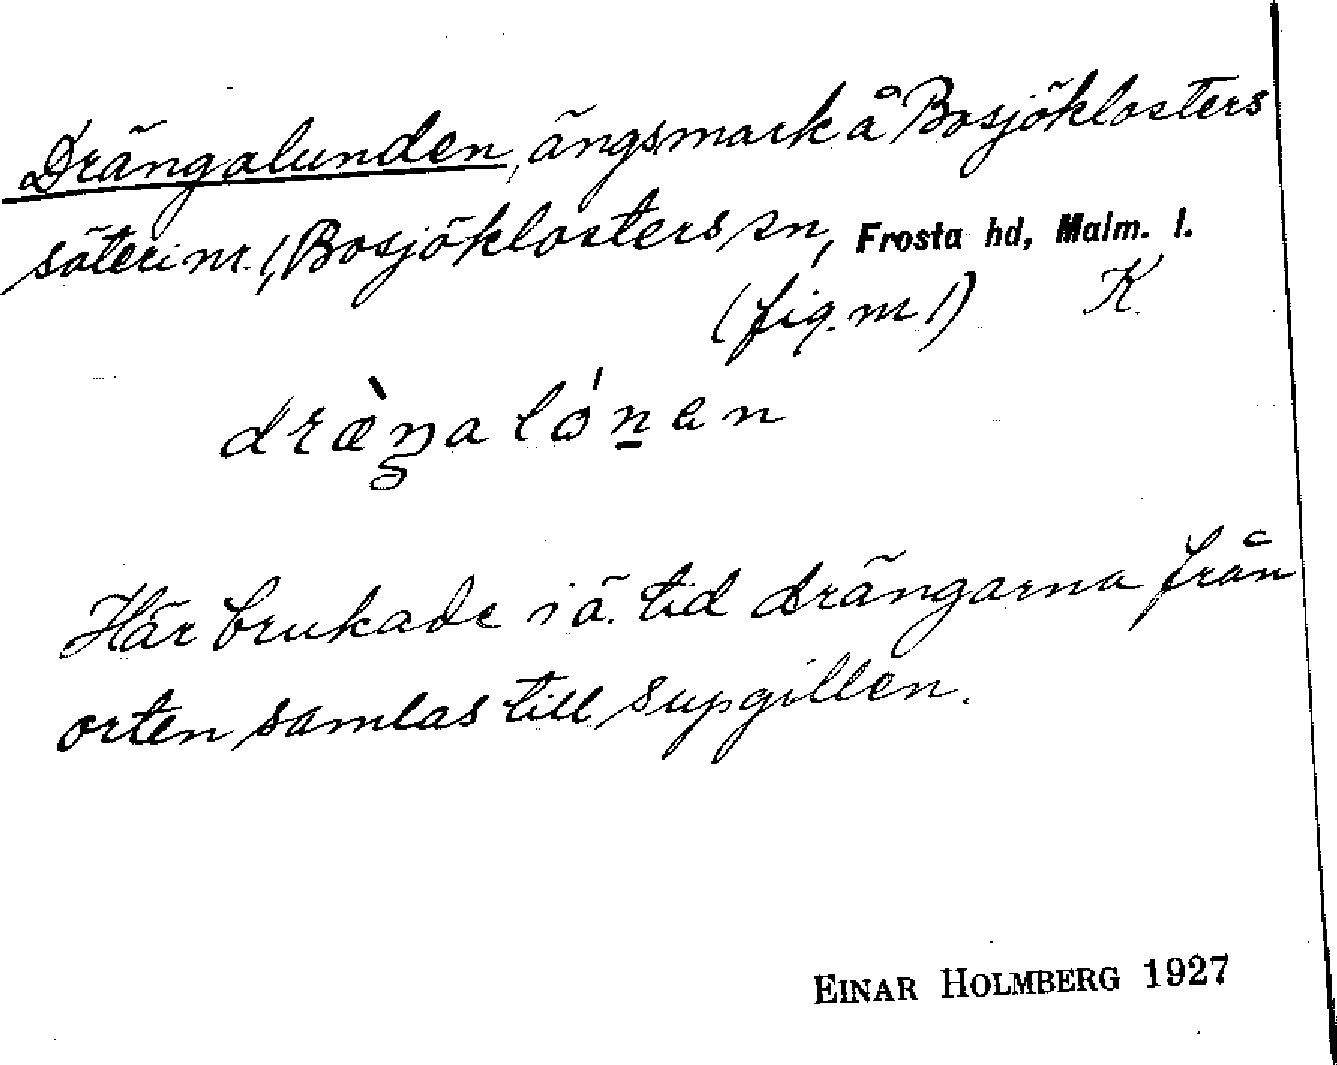 Drängalunden, ängsmark å Bosjöklosters
säteri nr 1, Bosjöklosters sn, Frosta hd, Malm. l.
(fig. nr 1) K
dræ̀ŋalónen
Här brukade i ä. tid drängarna från
orten samlas till supgillen.
EINAR HOLMBERG 1927